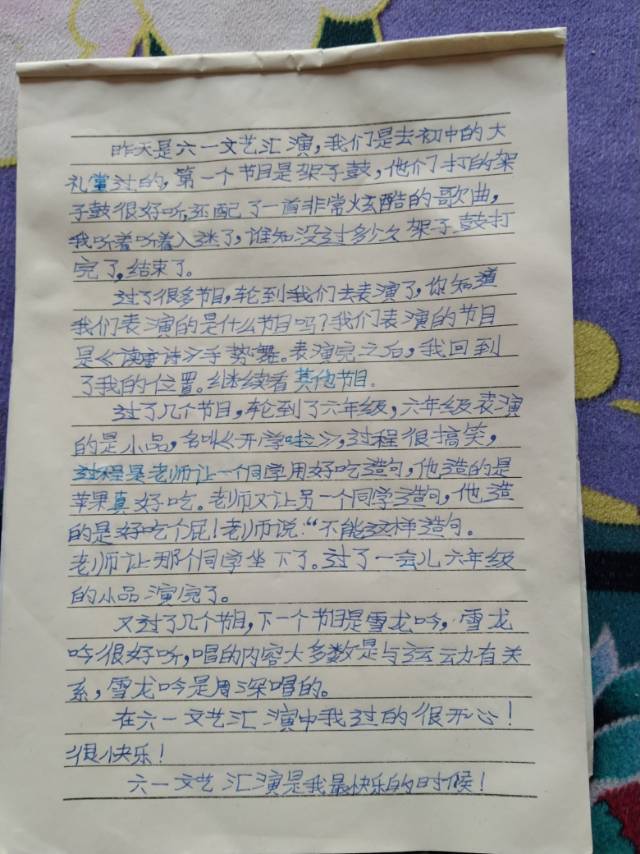 昨天是六一文艺汇演,我们是去初中的大
礼堂过的,第一个节目是架子鼓,他们打的架
子鼓很好听,还配了一首非常炫酷的歌曲,
我听着听着入迷了,谁知没过多少次架子鼓打
完了,结束了。
过了很多节目,轮到我们去表演了,你知道
我们表演的是什么节目吗?我们表演的节目
是《读唐诗》手势舞。表演完之后,我回到
了我的位置。继续看其他节目.
过了几个节目,轮到了六年级,六年级表演
的是小品,名叫《开学啦》,过程很搞笑,
过程是老师让一个同学用好吃造句,他造的是
苹果真好吃。老师又让另一个同学造句,他造
的是好吃个屁!老师说:“不能这样造句.
老师让那个同学坐下了。过了一会儿六年级
的小品演完了。
又过了几个节目,下一个节目是雪龙吟,雪龙
吟很好听,唱的内容大多数是与运动有关
系,雪龙吟是周深唱的。
在六一文艺汇演中我过的很开心!
很快乐!
六一文艺汇演是我最快乐的时候!